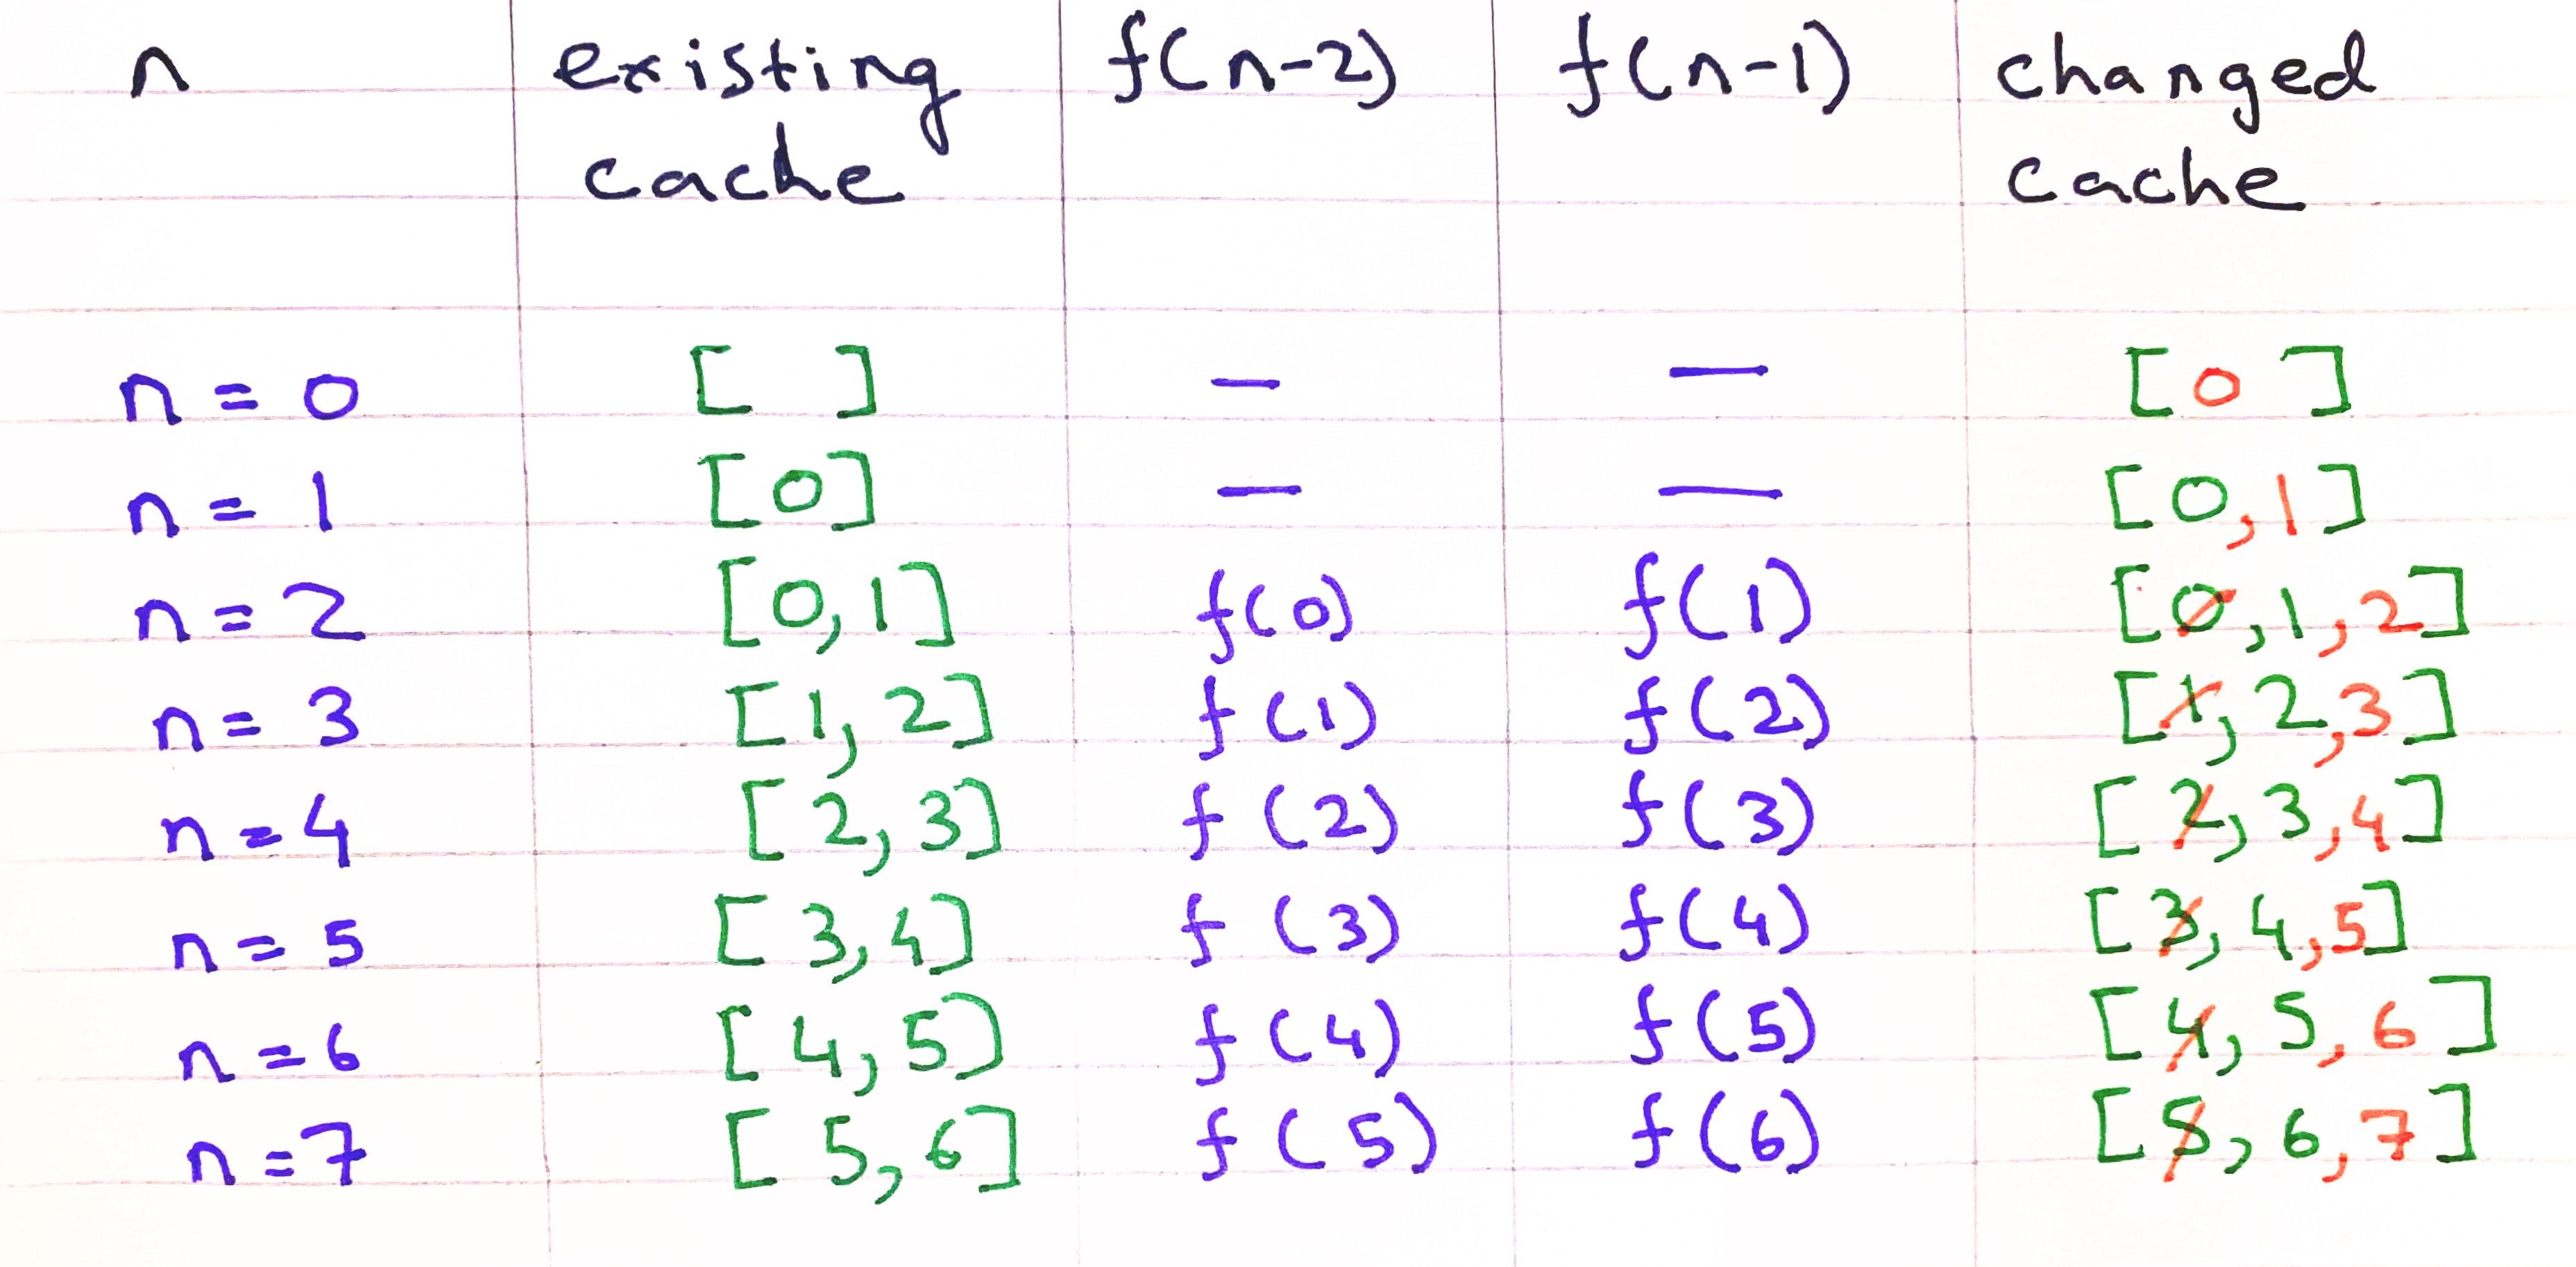 n existing f(n-2) f(n-1) changed
cache cache
n = 0 [ ] — — [ 0 ]
n = 1 [0] — — [0,1]
n = 2 [0,1] f(0) f(1) [0,1,2]
n = 3 [1,2] f(1) f(2) [1,2,3]
n = 4 [2,3] f(2) f(3) [2,3,4]
n = 5 [3,4] f(3) f(4) [3,4,5]
n = 6 [4,5] f(4) f(5) [4,5,6]
n = 7 [5,6] f(5) f(6) [5,6,7]